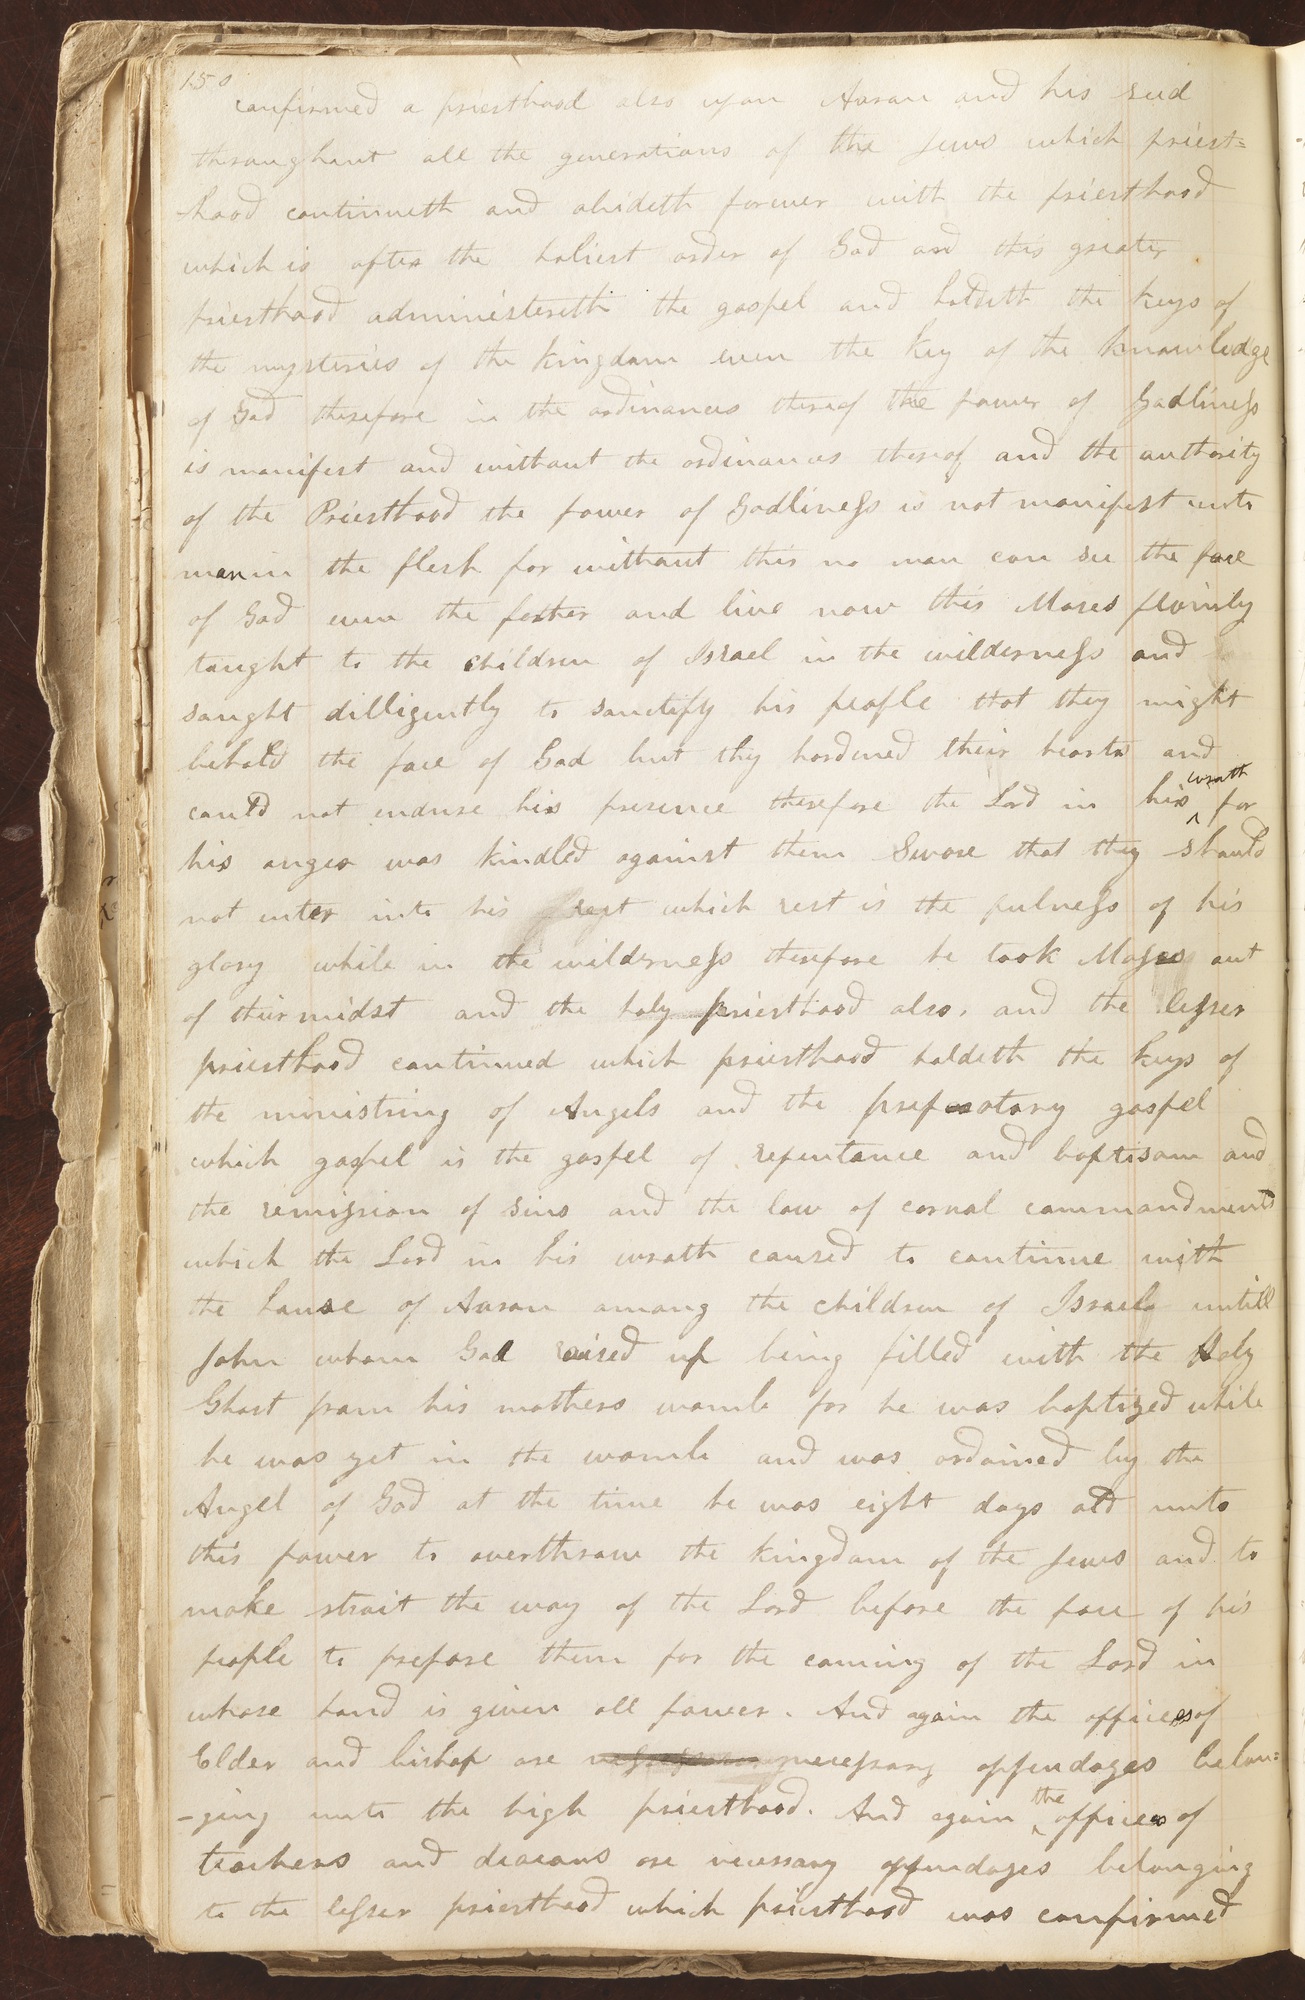 150
confirmed a priesthood also upon Aaron and his seed
throughout all the generations of the Jews which priest=
hood continueth and abideth forever with the priesthood
which is after the holiest order of God and this greater
priesthood administereth the gospel and holdeth the keys of
the mysteries of the kingdom even the key of the knowledge
of God therefore in the ordinances thereof the power of Godliness
is manifest and without the ordinances thereof and the authority
of the Priesthood the power of Godliness is not manifest unto
man in the flesh for without this no man can see the face
of God even the father and live now this Moses plainly
taught to the children of Israel in the wilderness and
sought dilligently to sanctify his people that they might
behold the face of God but they hardened their hearts and
could not endure his presence therefore the Lord in his wrath for
his anger was kindled against them Swore that they should
not enter into his rest which rest is the fulness of his
glory while in the wilderness therefore he took Moses out
of their midst and the holy priesthood also, and the lesser
priesthood continued which priesthood holdeth the keys of
the ministring of Angels and the preparatory gospel
which gospel is the gospel of repentance and baptisam and
the remission of sins and the law of carnal commandments
which the Lord in his wrath caused to continue with
the house of Aaron among the children of Israel untill
John whom God raised up being filled with the Holy
Ghost from his mothers womb for he was baptized while
he was yet in the womb and was ordained by the
Angel of God at the time he was eight days old unto
this power to overthrow the kingdom of the Jews and to
make strait the way of the Lord before the face of his
people to prepare them for the coming of the Lord in
whose hand is given all power. And again the offices of
Elder and bishop are necessary appendages belon=
-ging unto the high priesthood. And again the offices of
teachers and deacons are necessary appendages belonging
to the lesser priesthood which priesthood was confirmed